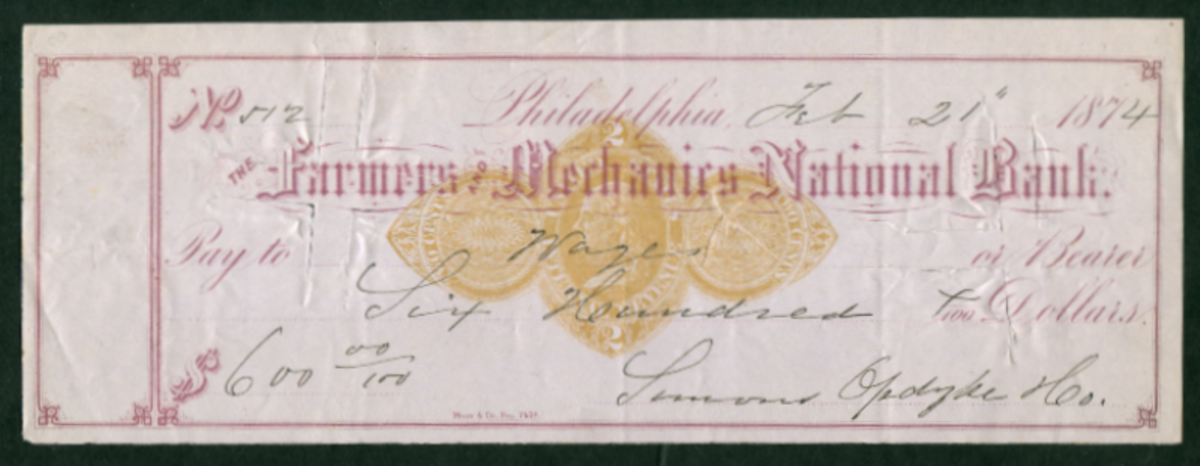 No. 512 Philadelphia, Feb 21" 1874
THE Farmers AND Mechanics National Bank.
Pay to Wages or Bearer
Six Hundred Dollars.
$600 00/100 Simons Opdyke & Co.
2
2